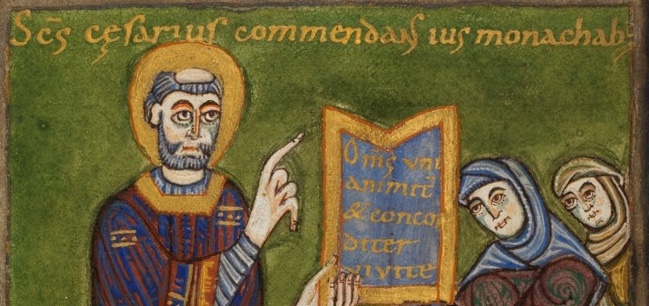 Scs cęsarius commendans ius monachab;
Oms uni
animit
& concor
diter
vivite